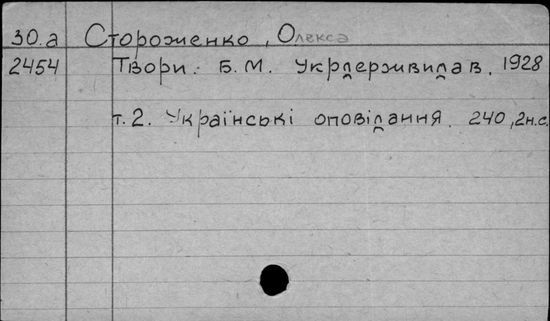 30.а Стороженко, Олекса
2454 Твори. Б.М. Укрдержвидав. 1928
т. 2. Українські оповідання. 240, 2н.с.